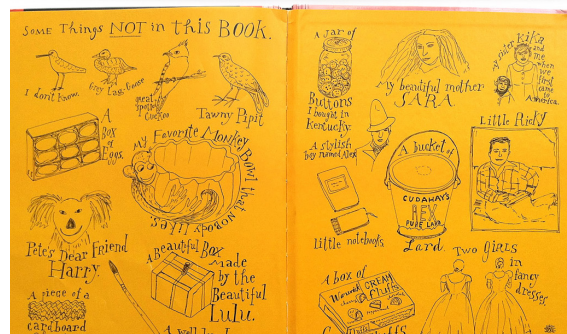 SOME THINGS NOT in this BOOK.
I don't know.
Grey Lag Goose
Great
Spotted
Cuckoo
Tawny Pipit
A
Box
of
Eggs.
My Favorite Monkey
Bowl that
NOBODY likes.
Pete's Dear Friend
Harry.
A Beautiful Box
Made
by the
Beautiful
LULU.
A piece of a
cardboard
A jar of
Buttons
I bought in
Kentucky.
My beautiful mother
SARA
My sister KIKA
and
me
when
we
first
came
to
America.
A stylish
boy named Alex
Little notebooks
A bucket of
CUDAHY'S
REX
PURE LARD
Lard
Little Ricky
Two Girls
in
fancy
dresses.
A box of
CREAM
Fluffs